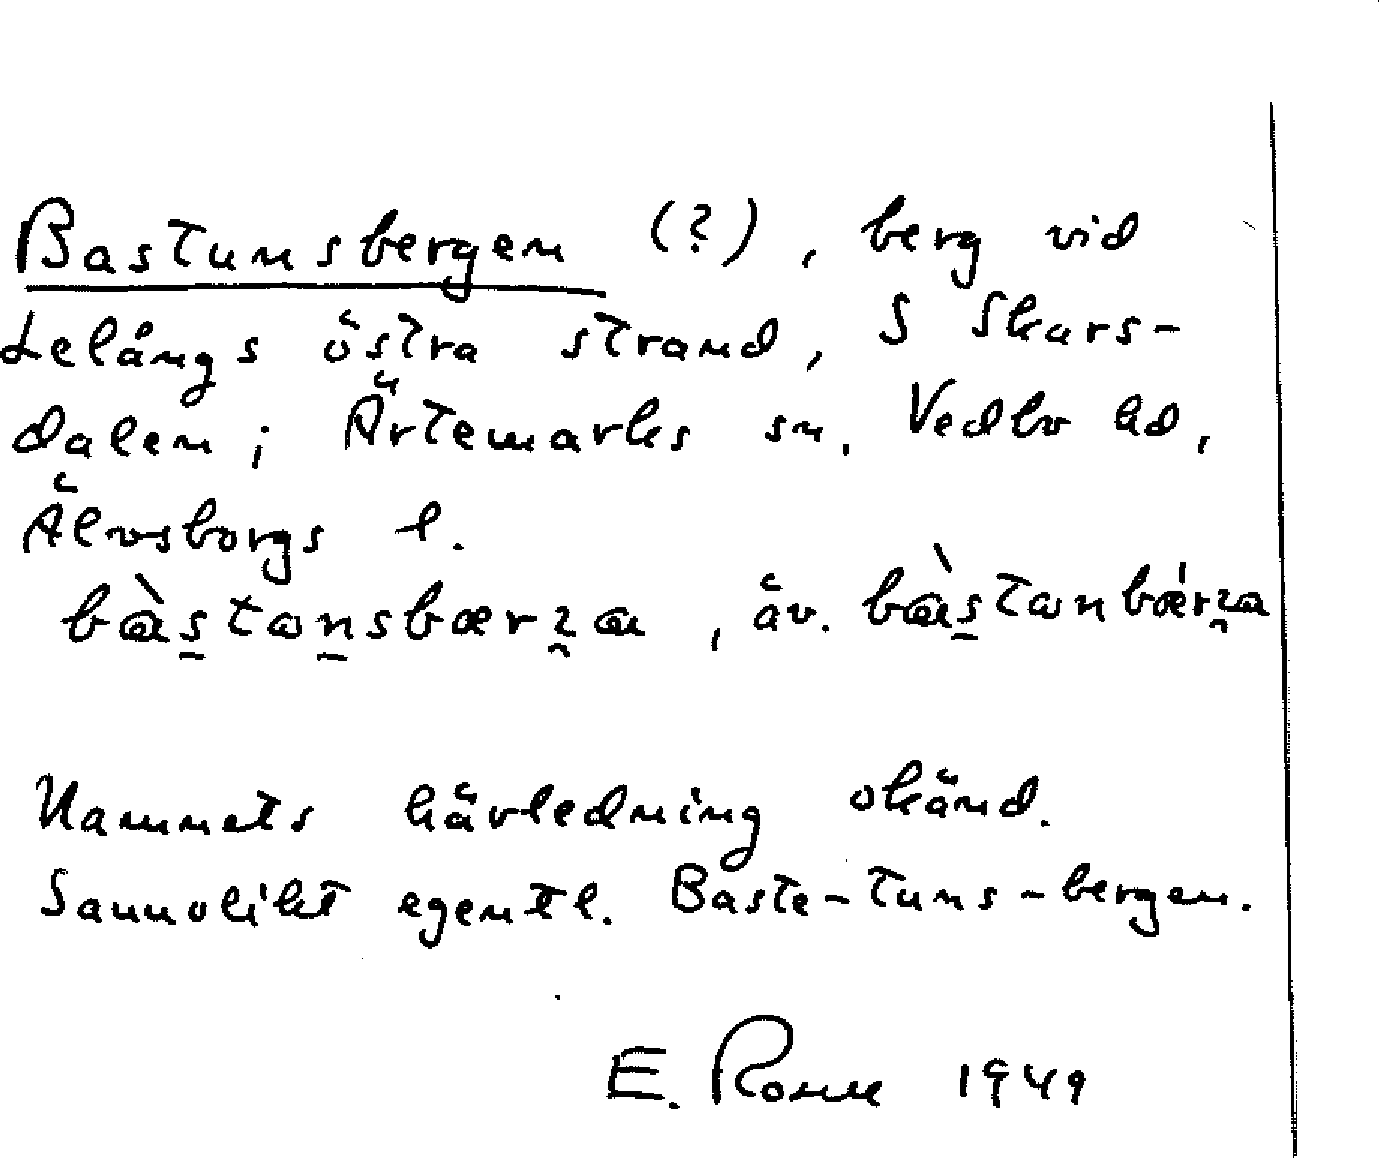 Bastunsbergen (?), berg vid
Lelångs östra strand, S Skars-
dalen; Ärtemarks sn. Vedbo hd,
Älvsborgs l.
bàs̱tanṉsbærza, äv. bàs̱tanbǽrza
Namnets härledning okänd.
Sannolikt egentl. Baste-tuns-bergen.
E. 1949